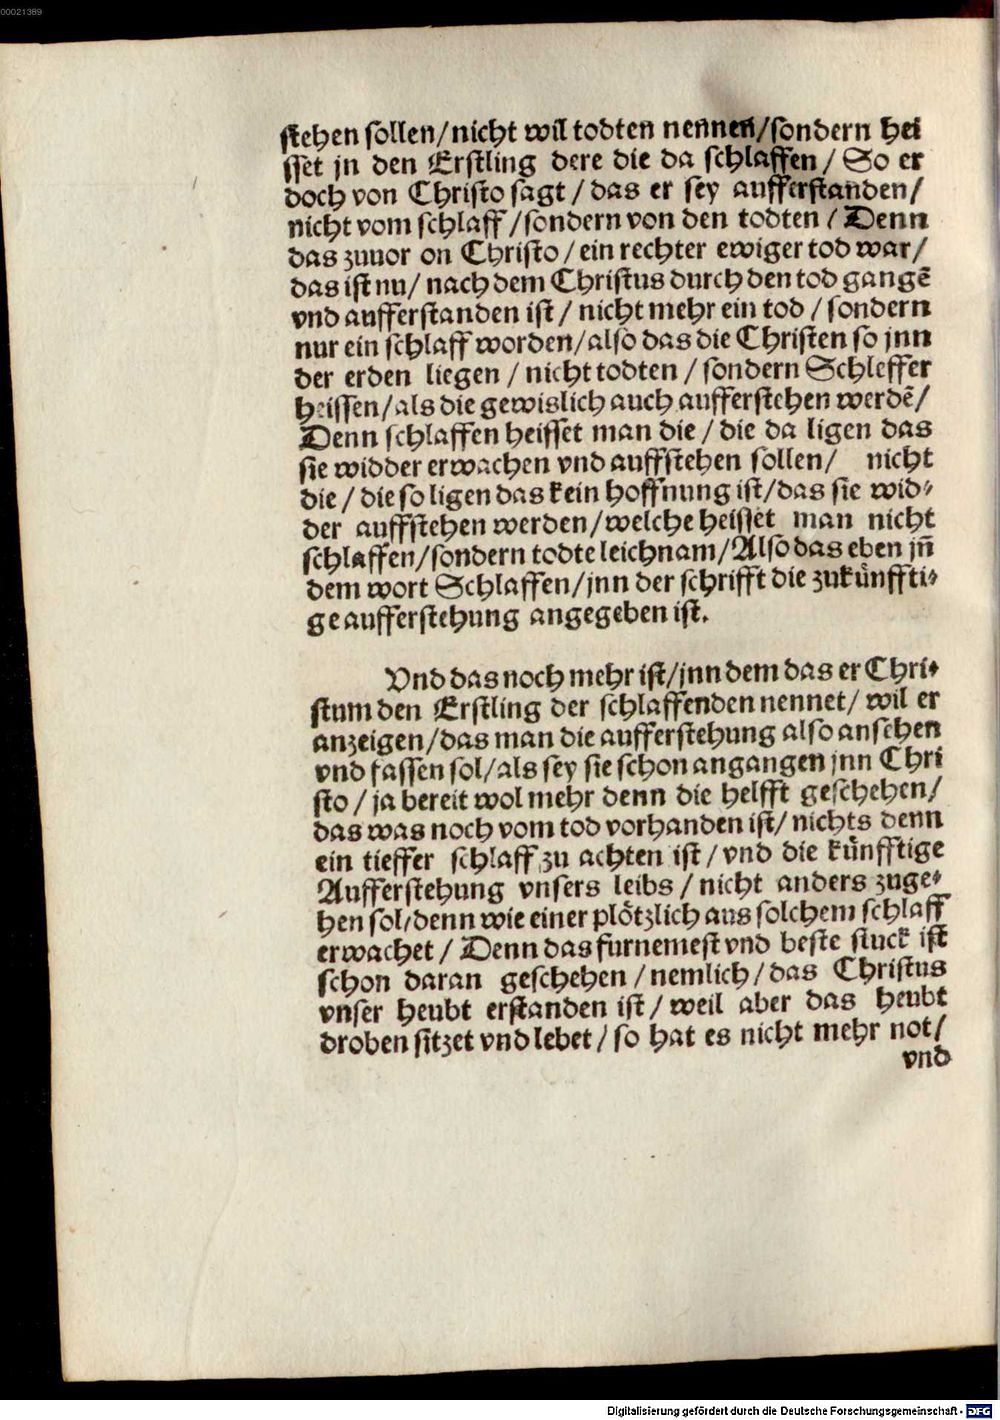 00021389
stehen sollen/nicht wil todten nennen/sondern hei
sset jn den Erstling dere die da schlaffen/ So er
doch von Christo sagt / das er sey aufferstanden/
nicht vom schlaff /sondern von den todten / Denn
das zuuor on Christo / ein rechter ewiger tod war/
das ist nu/ nach dem Christus durch den tod gangē
vnd aufferstanden ist / nicht mehr ein tod / sondern
nur ein schlaff worden/also das die Christen so jnn
der erden liegen / nicht todten / sondern Schleffer
heissen/als die gewislich auch aufferstehen werdē/
Denn schlaffen heisset man die / die da ligen das
sie widder erwachen vnd auffstehen sollen/ nicht
die / die so ligen das kein hoffnung ist/das sie wid⸗
der auffstehen werden/welche heisset man nicht
schlaffen/sondern todte leichnam/Also das eben jn̄
dem wort Schlaffen/jnn der schrifft die zukünffti⸗
ge aufferstehung angegeben ist.
Vnd das noch mehr ist/jnn dem das er Chri⸗
stum den Erstling der schlaffenden nennet/ wil er
anzeigen/das man die aufferstehung also ansehen
vnd fassen sol/als sey sie schon angangen jnn Chri
sto / ja bereit wol mehr denn die helfft geschehen/
das was noch vom tod vorhanden ist/ nichts denn
ein tieffer schlaff zu achten ist / vnd die künfftige
Aufferstehung vnsers leibs / nicht anders zuge⸗
hen sol/denn wie einer plötzlich aus solchem schlaff
erwachet / Denn das furnemest vnd beste stuck ist
schon daran geschehen / nemlich/das Christus
vnser heubt erstanden ist / weil aber das heubt
droben sitzet vnd lebet / so hat es nicht mehr not/
vnd
Digitalisierung gefördert durch die Deutsche Forschungsgemeinschaft - DFG